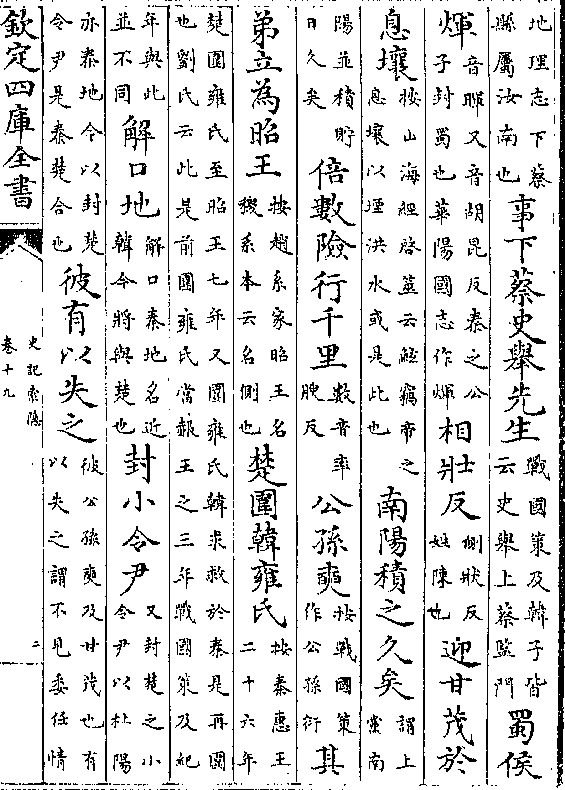 地理志下蔡縣屬汝南也事下蔡史舉先生戰國策及韓子皆云史舉上蔡監門蜀侯
煇音暉又音胡昆反秦之公子封蜀也華陽國志作煇相壯反側狀反姓陳也迎甘茂於
息壤按山海經啓筮云鯀竊帝之息壤以堙洪水或是此也南陽積之久矣謂上黨南
陽並積貯日久矣倍數險行千里數音率腴反公孫奭按戰國策作公孫衍其
弟立為昭王按趙系家昭王名稷系本云名側也楚圍韓雍氏按秦惠王二十六年
楚圍雍氏至昭王七年又圍雍氏韓求救於秦是再圍也劉氏云此是前圍雍氏當赧王之三年戰國策及紀
年與此並不同解口地解口秦地名近韓今將與楚也封小令尹又封楚之小令尹以杜陽
亦秦地今以封楚令尹是秦楚合也彼有以失之彼公孫奭及甘茂也有以失之謂不見委任情
欽定四庫全書
史記索隱
卷十九
二